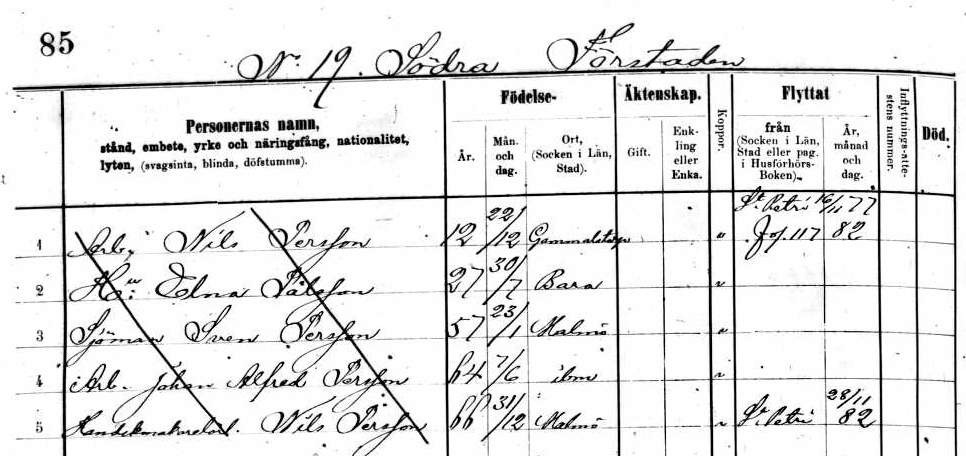 85
No 19. Södra Förstaden
Personernas namn,
stånd, embete, yrke och näringsfång, nationalitet,
lyten, (svagsinta, blinda, döfstumma).
Födelse-
År.
Mån.
och
dag.
Ort,
(Socken i Län,
Stad).
Äktenskap.
Gift.
Enk-
ling
eller
Enka.
Koppor.
Flyttat
från
(Socken i Län,
Stad eller pag.
i Husförhörs-
Boken).
År,
månad
och
dag.
Inflyttnings-atte-
stens nummer.
Död.
St. Petri 16/11 77
1 Arb. Nils Persson 12 22/12 Gammalstorp " Fol. 117 82
2 Hu: Elna Pålsson 27 30/7 Bara "
3 Sjöman Sven Persson 57 23/1 Malmö "
4 Arb. Johan Alfred Persson 64 7/6 ibm "
5 Nils Persson 66 31/12 Malmö " St. Petri 28/11 82